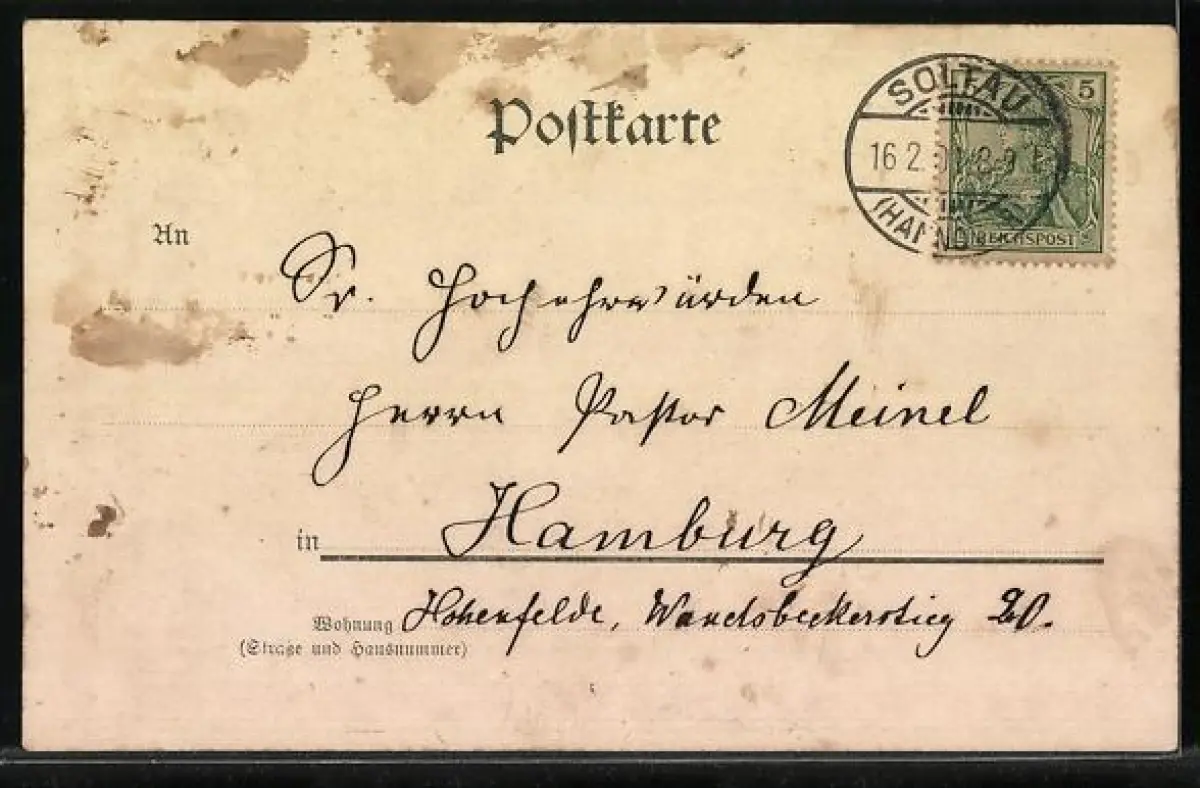 Postkarte
SOLTAU
16 2.
(HANNO
5
REICHSPOST
An
Sr. Hochehrwürden
Herrn Pastor Meinel
in Hamburg
Wohnung Hohenfelde, Wandsbeckerstieg 20.
(Straße und Hausnummer)